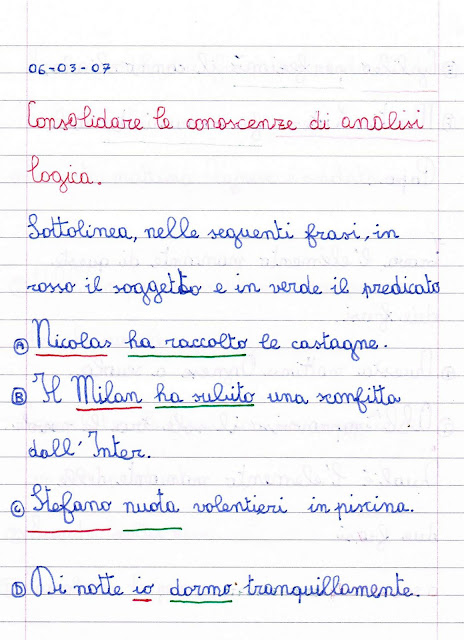 06-03-07
Consolidare le conoscenze di analisi
logica.
Sottolinea, nelle seguenti frasi, in
rosso il soggetto e in verde il predicato
A Nicolas ha raccolto le castagne.
B Il Milan ha subito una sconfitta
dall'Inter.
C Stefano nuota volentieri in piscina.
D Di notte io dormo tranquillamente.